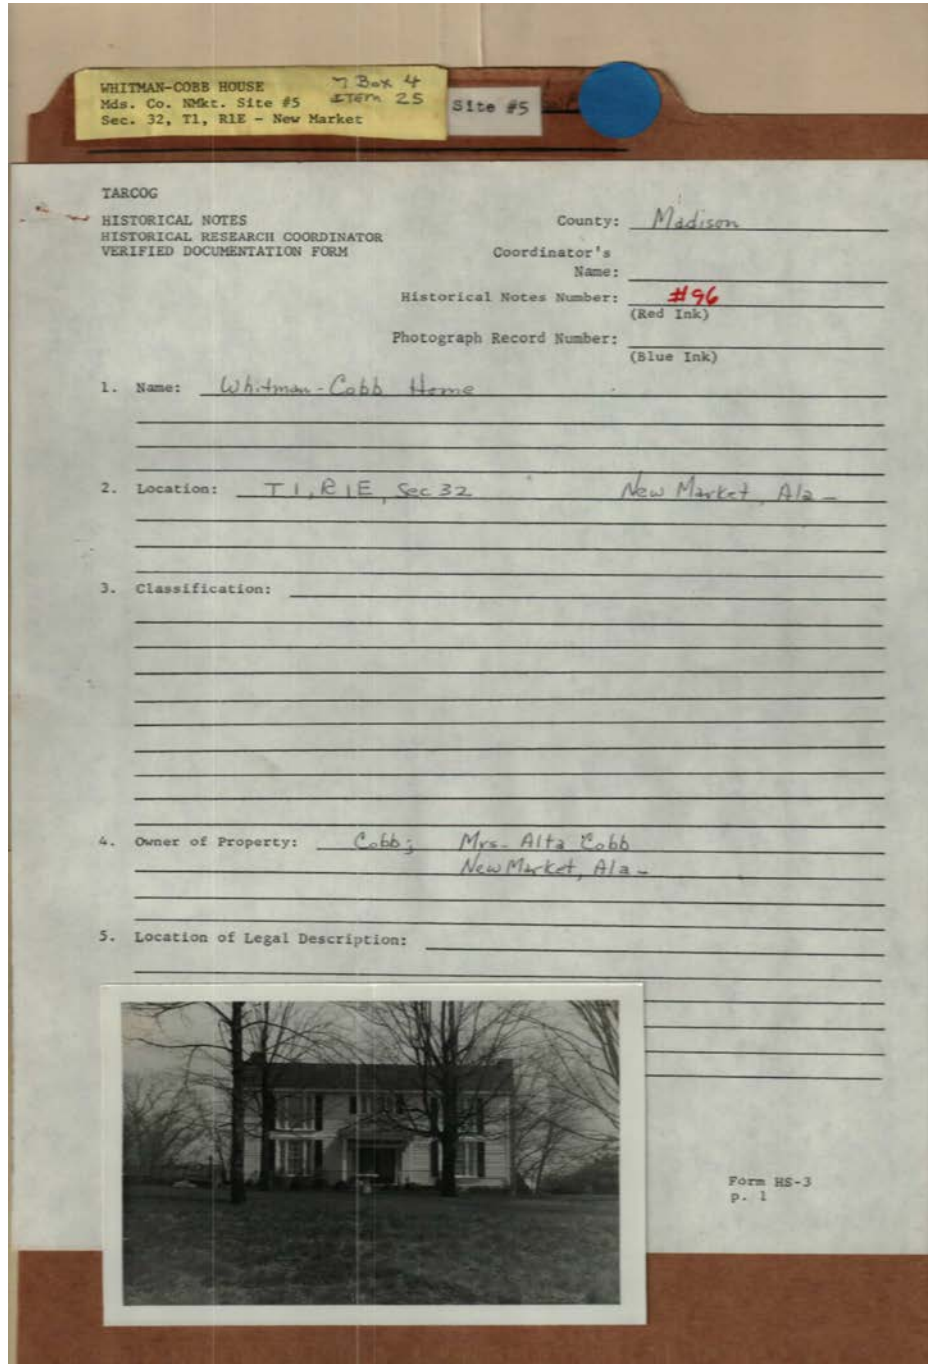 WHITMAN-COBB HOUSE
Mds. Co. NMkt. Site #5
Sec. 32, T1, R1E - New Market
Box 4
ITEM 25
Site #5
TARCOG
HISTORICAL NOTES
HISTORICAL RESEARCH COORDINATOR
VERIFIED DOCUMENTATION FORM
County: Madison
Coordinator's
Name:
Historical Notes Number: #96
(Red Ink)
Photograph Record Number:
(Blue Ink)
1. Name: Whitman-Cobb Home
2. Location: T1, R1E, Sec 32 New Market, Ala-
3. Classification:
4. Owner of Property: Cobb; Mrs. Alta Cobb
New Market, Ala-
5. Location of Legal Description:
Form HS-3
p. 1